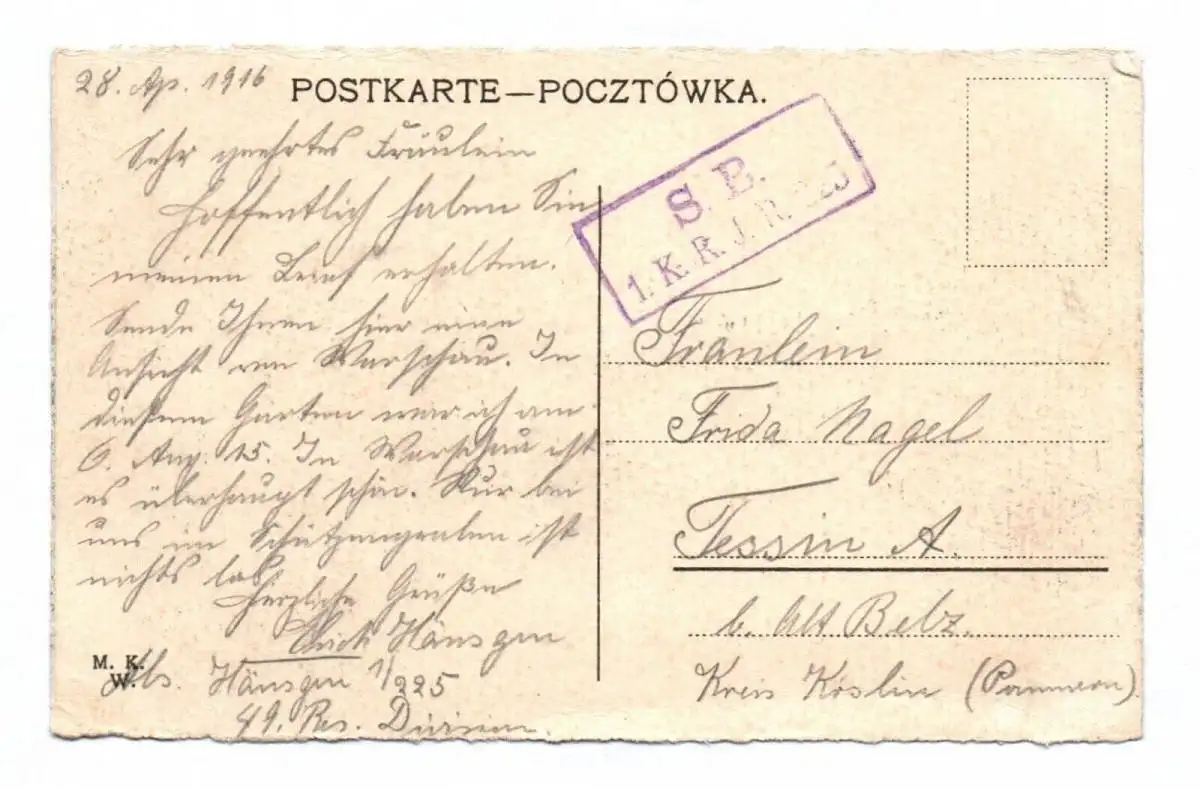 28. Ap. 1916
POSTKARTE—POCZTÓWKA.
Sehr geehrtes Fräulein
Hoffentlich haben Sie
meinen Brief erhalten.
Sende Ihnen hier eine
Ansicht von Warschau. In
diesem Garten war ich am
6. Aug. 15. In Warschau ist
es überhaupt schön. Nur bei
uns im Schützengraben ist
nichts los
Herzliche Grüße
Hänsgen
M. K.
W.
Abs. Hänsgen 1/225
49. Res. Division
S. B.
1. K. R. J. R. 225
Fräulein
Frida Nagel
Tessin A.
b. Alt Belz.
Kreis Köslin (Pommern)